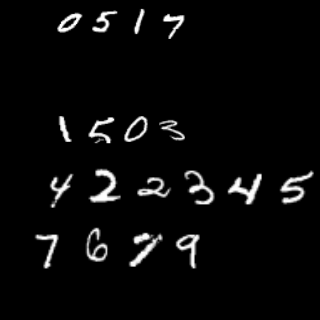 0517
1503
422345
7679